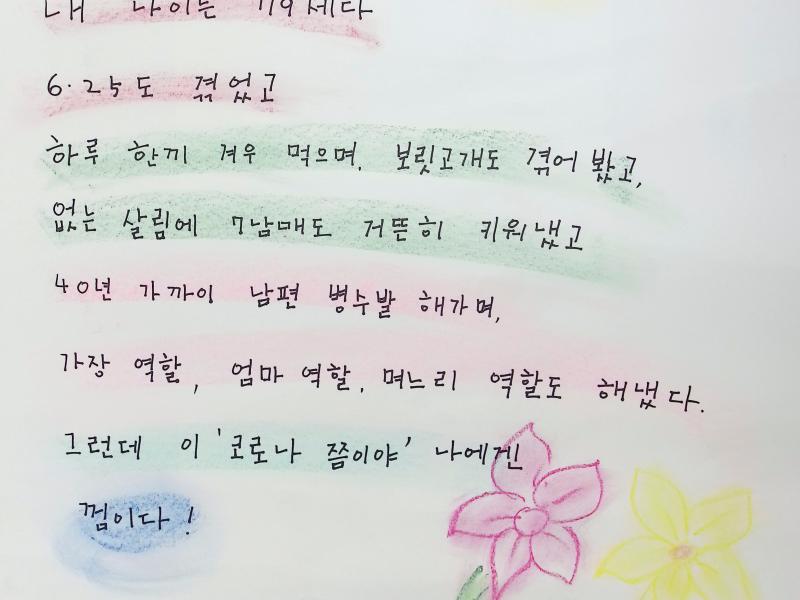 내 나이는 79세다
6·25도 겪었고
하루 한끼 겨우 먹으며, 보릿고개도 겪어 봤고,
없는 살림에 7남매도 거뜬히 키워냈고
40년 가까이 남편 병수발 해가며,
가장 역할, 엄마 역할, 며느리 역할도 해냈다.
그런데 이 '코로나 쯤이야' 나에겐
껌이다!